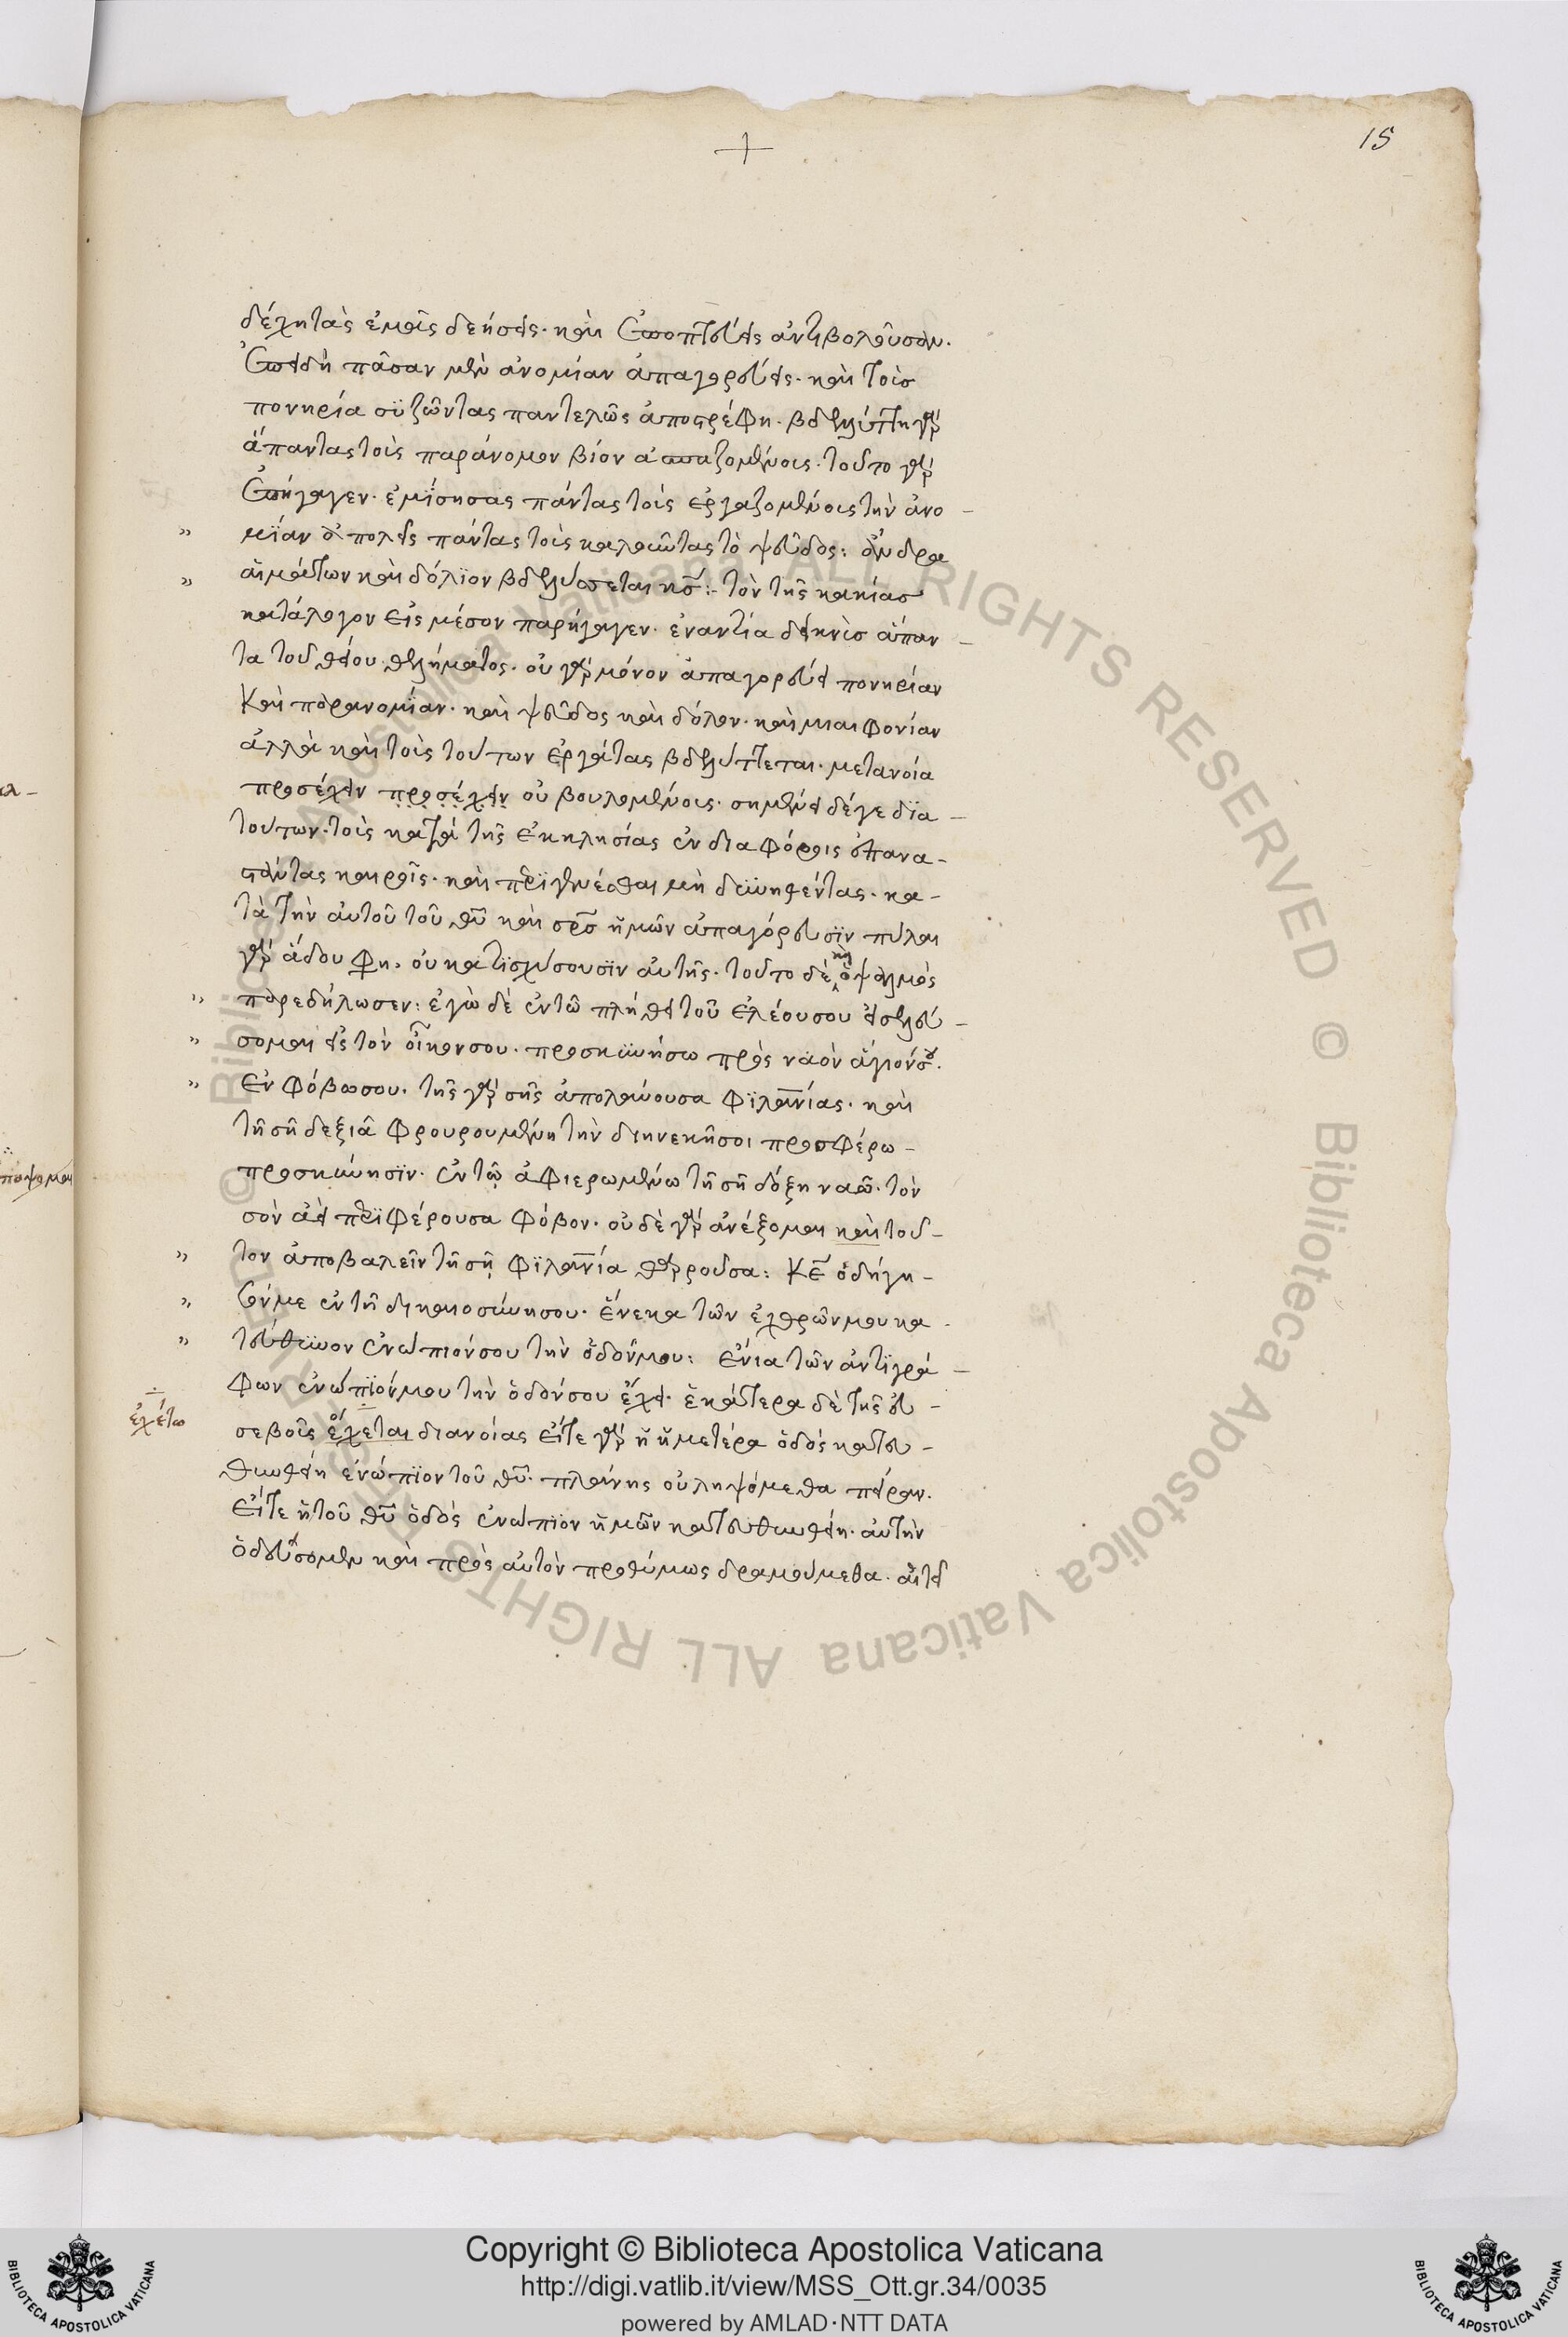 15
δέχη τὰς ἐμὰς δεήσεις. καὶ ἐποπτεύεις ἀντιβολοῦσαν.
ἐπειδὴ πᾶσαν μὲν ἀνομίαν ἀπαγορεύεις. καὶ τοὺς
πονηρία συζῶντας παντελῶς ἀποστρέφη. βδελύττη γὰρ
ἅπαντας τοὺς παράνομον βίον ἀσπαζομένους. τοῦτο γὰρ
ἐπήγαγεν. ἐμίσησας πάντας τοὺς ἐργαζομένους τὴν ἀνο-
" μΐαν ἀπολεῖς πάντας τοὺς λαλοῦντας τὸ ψεῦδος: ἄνδρα
" αἱμάτων καὶ δόλϊον βδελύσσεται κς̅:- τὸν τῆς κακίας
κατάλογον εἰς μέσον παρήγαγεν. ἐναντία δεικνὺς ἅπαν-
τα τοῦ θείου θελήματος. οὐ γὰρ μόνον ἀπαγορεύει πονηρίαν
καὶ παρανομίαν. καὶ ψεῦδος καὶ δόλον. καὶ μιαιφονίαν
ἀλλὰ καὶ τοὺς τούτων ἐργάτας βδελύττεται. μετανοία
προσέχειν προσέχειν οὐ βουλομένους. σημαίνει δέ γε δϊα-
τούτων. τοὺς κατὰ τῆς ἐκκλησίας ἐν διαφόροις ἐπανα-
στάντας καιροῖς. καὶ περιγενέσθαι μὴ δυνηθέντας. κα-
τὰ τὴν αὐτοῦ τοῦ θυ̅ καὶ σρς̅ ἡμῶν ἀπαγόρευσϊν πύλαι
γὰρ ἅδου φη. οὐ κατϊσχύσουσϊν αὐτῆς. τοῦτο δὲ καὶ ὁ ψαλμὸς
" παρεδήλωσεν: ἐγὼ δὲ ἐν τῶ πλήθει τοῦ ἐλέους σου εἰσελεύ-
" σομαι εἰς τὸν οἶκον σου. προσκυνήσω πρὸς ναὸν ἅγιόν σου.
" Ἐν φόβω σου. τῆς γὰρ σῆς ἀπολαύουσα φϊλανι̅ας. καὶ
τῆ σῆ δεξιᾶ φρουρουμένη τὴν διηνεκῆ σοι προσφέρω-
προσκύνησϊν. ἐν τῶ ἀφιερωμένω τῆ σῆ δόξη ναῶ. τὸν
σὸν ἀεὶ περιφέρουσα φόβον. οὐδὲ γὰρ ἀνέξομαι καὶ τοῦ-
" τον ἀποβαλεῖν τῆ σῆ φϊλανι̅α θαρροῦσα: Κε̅ ὁδήγη-
" σόν με ἐν τῆ δικαιοσύνη σου. ἕνεκα τῶν ἐχθρῶν μου κα
" τεύθυνον ἐνώπιόν σου τὴν ὁδόν μου: ἔνια τῶν ἀντϊγρά-
φων ἐνώπϊόν μου τὴν ὁδόν σου ἔχει. ἑκάτερα δὲ τῆς εὐ-
ἐχέτω
σεβοῦς ἔχεται διανοίας εἴτε γὰρ ἡ ἡμετέρα ὁδὸς κατευ-
θυνθείη ἐνώπϊον τοῦ θυ̅. πλάνης οὐ ληψόμεθα πεῖραν.
εἴτε ἡ τοῦ θυ̅ ὁδὸς ἐνώπϊον ἡμῶν κατευθυνθείη. αὐτὴν
ὁδεύσομεν καὶ πρὸς αὐτὸν προθύμως δραμούμεθα. αἰτεῖ
Copyright © Biblioteca Apostolica Vaticana
http://digi.vatlib.it/view/MSS_Ott.gr.34/0035
powered by AMLAD·NTT DATA